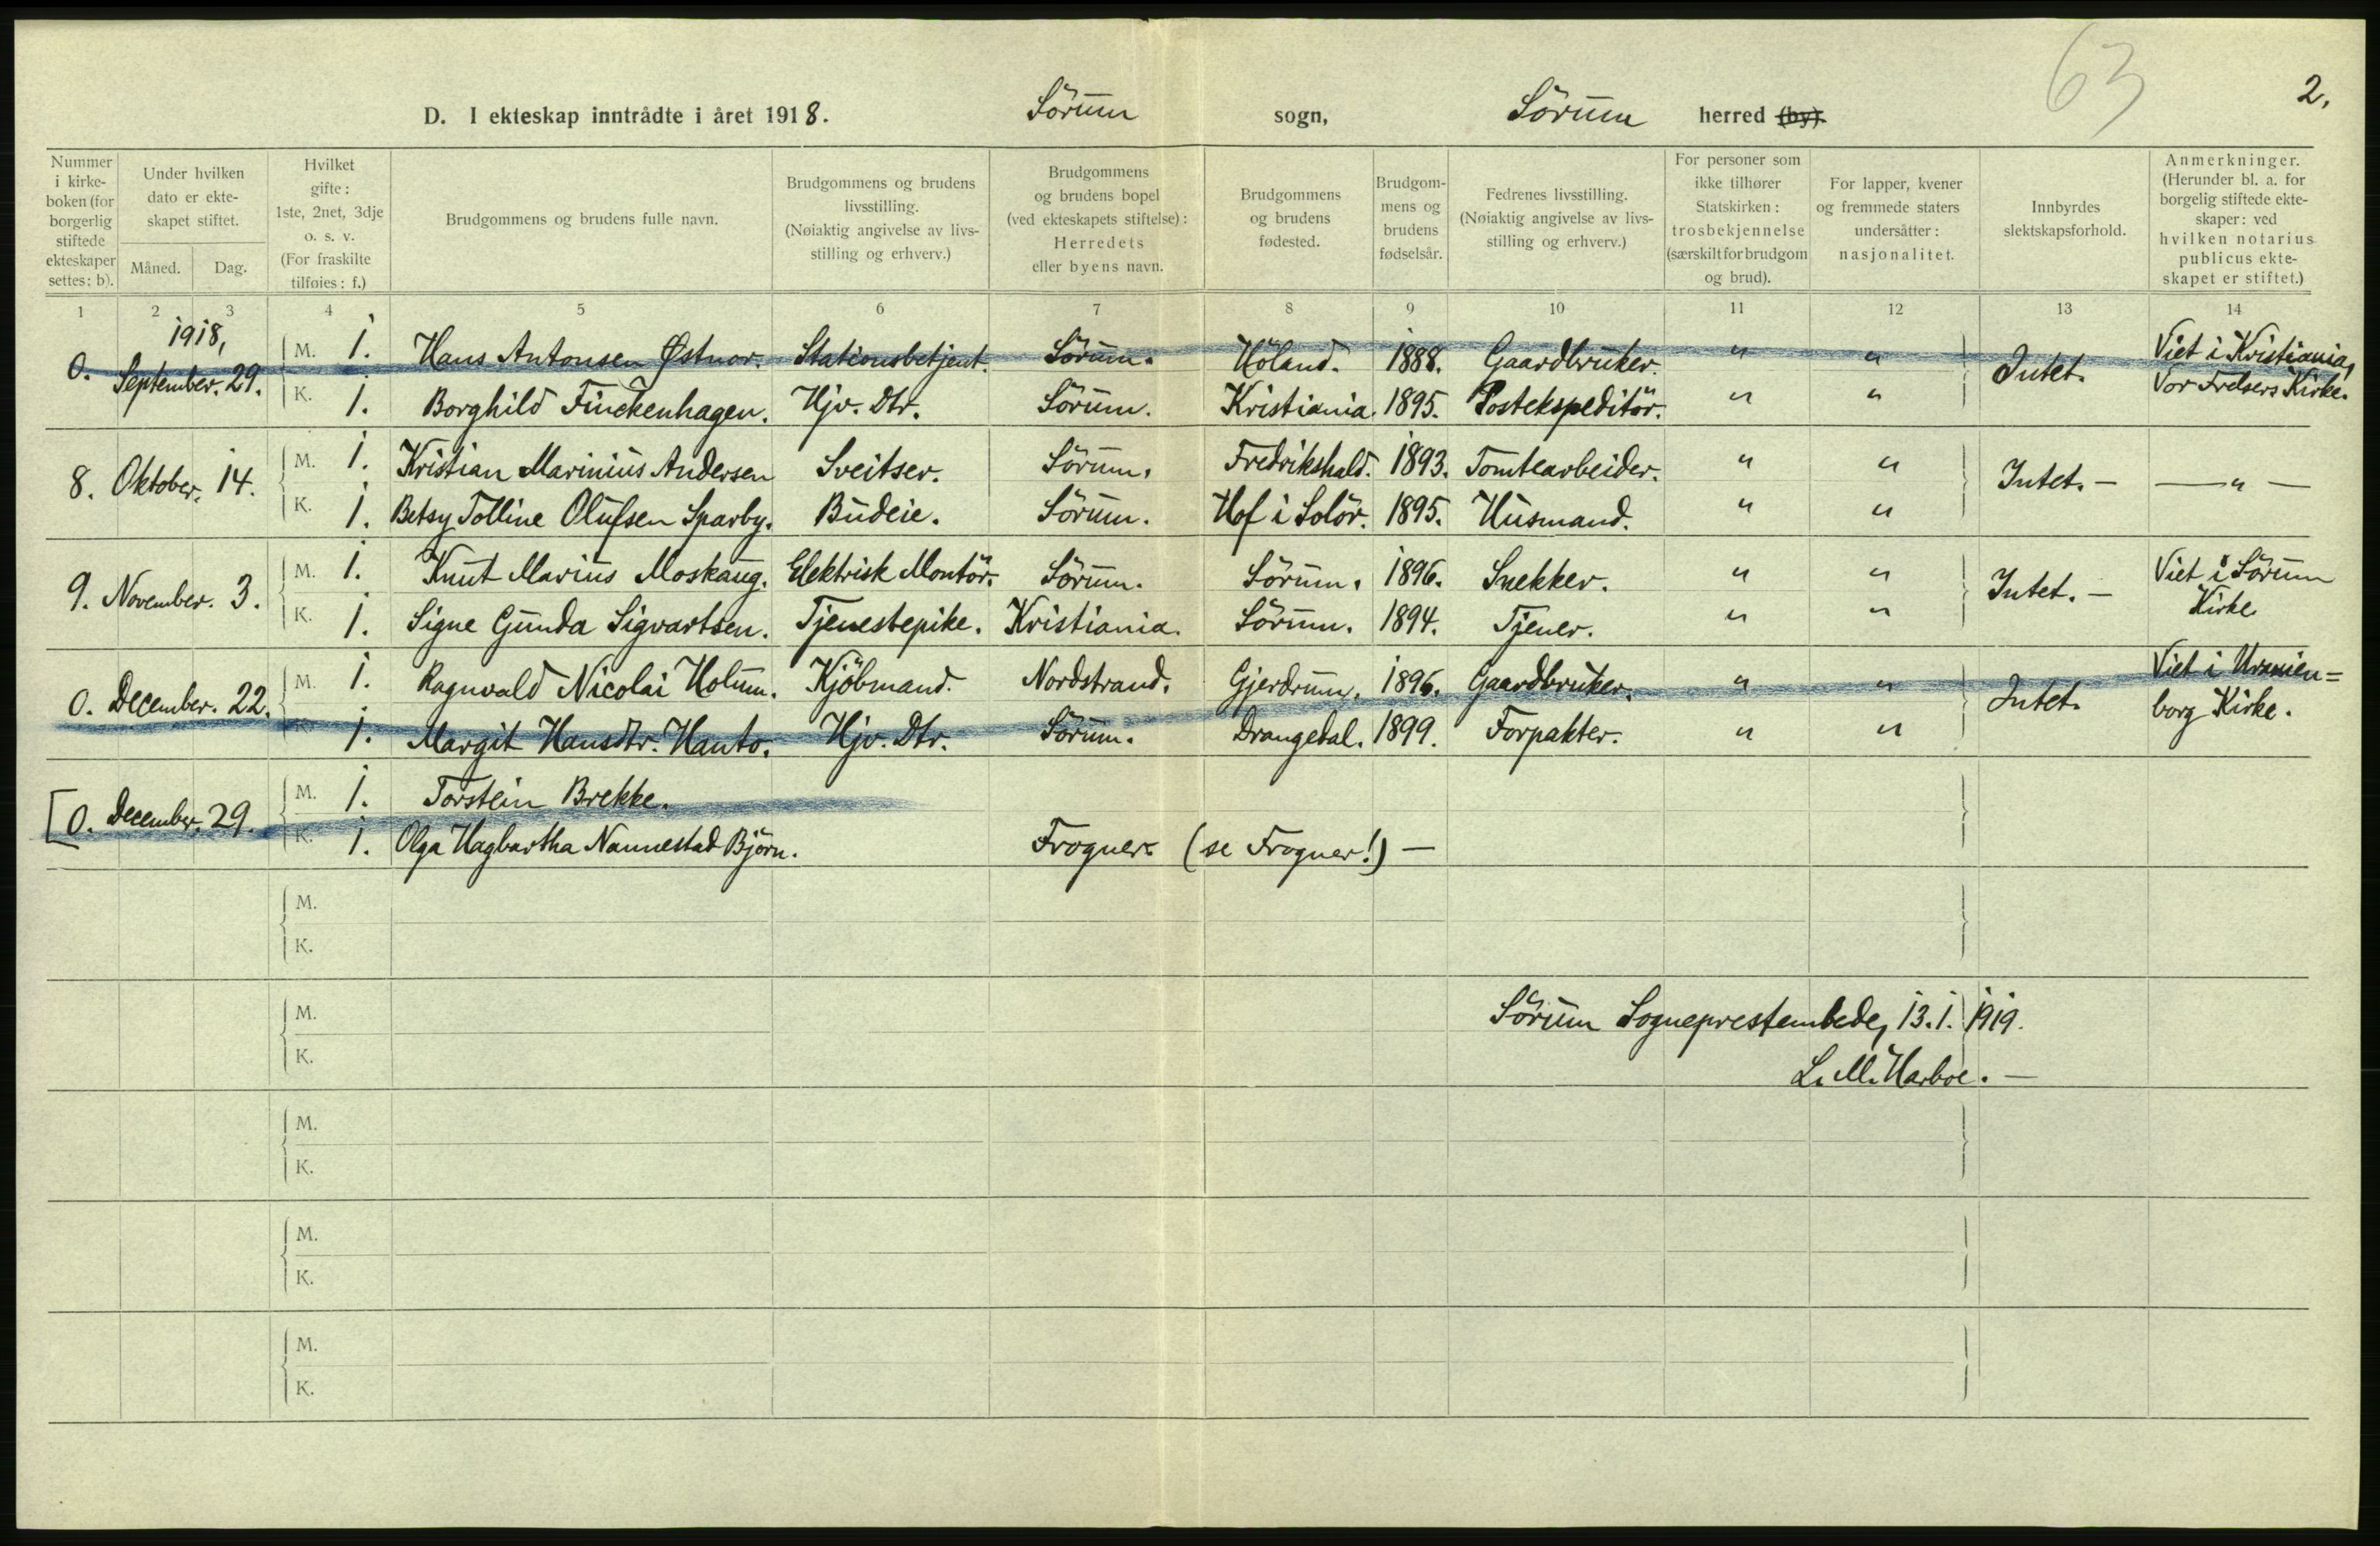 63
2.
D. I ekteskap inntrådte i året 1918. Sörum sogn, Sörum herred (by).
Nummer i kirkeboken (for borgerlig stiftede ekteskaper settes: b).
Under hvilken dato er ekteskapet stiftet.
Måned. Dag.
Hvilket gifte: 1ste, 2net, 3dje o. s. v. (For fraskilte tilføies: f.)
Brudgommens og brudens fulle navn.
Brudgommens og brudens livsstilling. (Nøiaktig angivelse av livsstilling og erhverv.)
Brudgommens og brudens bopel (ved ekteskapets stiftelse): Herredets eller byens navn.
Brudgommens og brudens fødested.
Brudgommens og brudens fødselsår.
Fedrenes livsstilling. (Nøiaktig angivelse av livsstilling og erhverv.)
For personer som ikke tilhører Statskirken: trosbekjennelse (særskilt for brudgom og brud).
For lapper, kvener og fremmede staters undersåtter: nasjonalitet.
Innbyrdes slektskapsforhold.
Anmerkninger. (Herunder bl. a. for borgelig stiftede ekteskaper: ved hvilken notarius publicus ekteskapet er stiftet.)
1 2 3 4 5 6 7 8 9 10 11 12 13 14
1918,
0. September. 29. M. 1. Hans Antonsen Østnor. Stationsbetjent. Sörum. Höland. 1888. Gaardbruker. " " Intet. Viet i Kristiania,
K. 1. Borghild Finckenhagen. Hjv. Dtr. Sörum. Kristiania. 1895. Postekspeditör. " " Vor Frelsers Kirke.
8. Oktober. 14. M. 1. Kristian Marinius Andersen Sveitser. Sörum. Fredrikshald. 1893. Tomtearbeider. " " Intet. — — " —
K. 1. Betsy Tolline Olufsen Sparby. Budeie. Sörum. Hof i Solör. 1895. Husmand. " "
9. November. 3. M. 1. Knut Marius Moskaug. Elektrisk Montör. Sörum. Sörum. 1896. Snekker. " " Intet. — Viet i Sörum
K. 1. Signe Gunda Sigvartsen. Tjenestepike. Kristiania. Sörum. 1894. Tjener. " " Kirke
0. December. 22. M. 1. Ragnvald Nicolai Holum. Kjöbmand. Nordstrand. Gjerdrum. 1896. Gaardbruker. " " Intet. Viet i Uranien=
K. 1. Margit Hansdtr. Hanto. Hjv. Dtr. Sörum. Drangedal. 1899. Forpakter. " " borg Kirke.
[0. December. 29. M. 1. Torstein Brekke.
K. 1. Olga Hagbartha Nannestad Björn. Frogner. (se Frogner!) —
M.
K.
M. Sörum Sogneprestembede, 13.1.1919.
K. L. M. Harboe. —
M.
K.
M.
K.
M.
K.